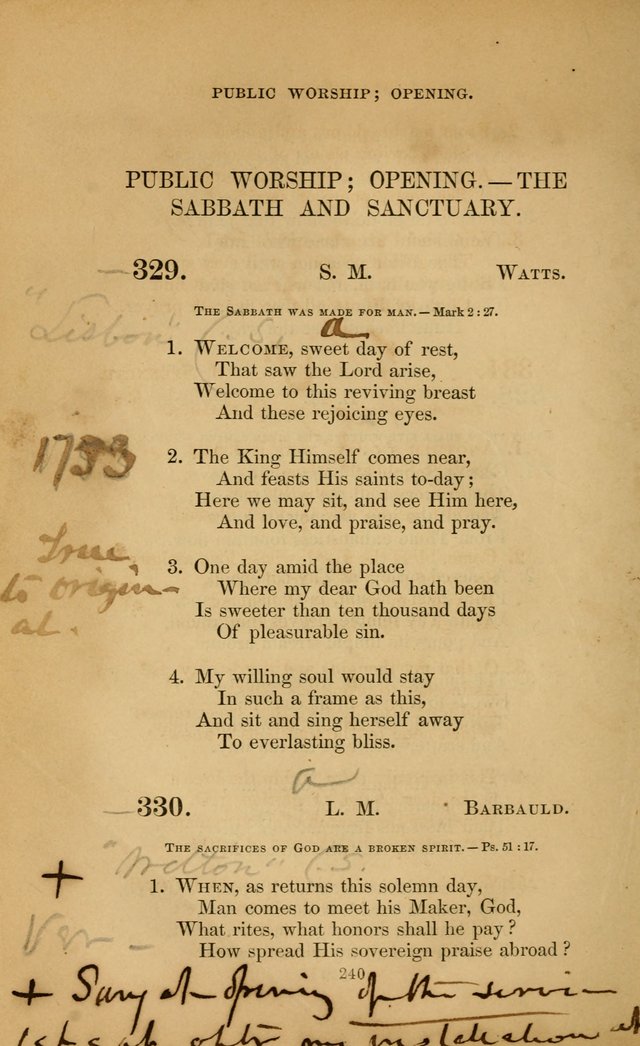 PUBLIC WORSHIP; OPENING.
PUBLIC WORSHIP; OPENING.—THE
SABBATH AND SANCTUARY.
329. S. M. WATTS.
THE SABBATH WAS MADE FOR MAN.—Mark 2 : 27.
"Lisbon" C. S.
a
1. WELCOME, sweet day of rest,
That saw the Lord arise,
Welcome to this reviving breast
And these rejoicing eyes.
1733
2. The King Himself comes near,
And feasts His saints to-day;
Here we may sit, and see Him here,
And love, and praise, and pray.
True
to origin-
al.
3. One day amid the place
Where my dear God hath been
Is sweeter than ten thousand days
Of pleasurable sin.
4. My willing soul would stay
In such a frame as this,
And sit and sing herself away
To everlasting bliss.
a
330. L. M. BARBAULD.
THE SACRIFICES OF GOD ARE A BROKEN SPIRIT.—Ps. 51 : 17.
"Welton" C. S.
+
1. WHEN, as returns this solemn day,
Man comes to meet his Maker, God,
What rites, what honors shall he pay?
How spread His sovereign praise abroad?
Ver-
240
+ Sung at opening of the servi-
my installation at